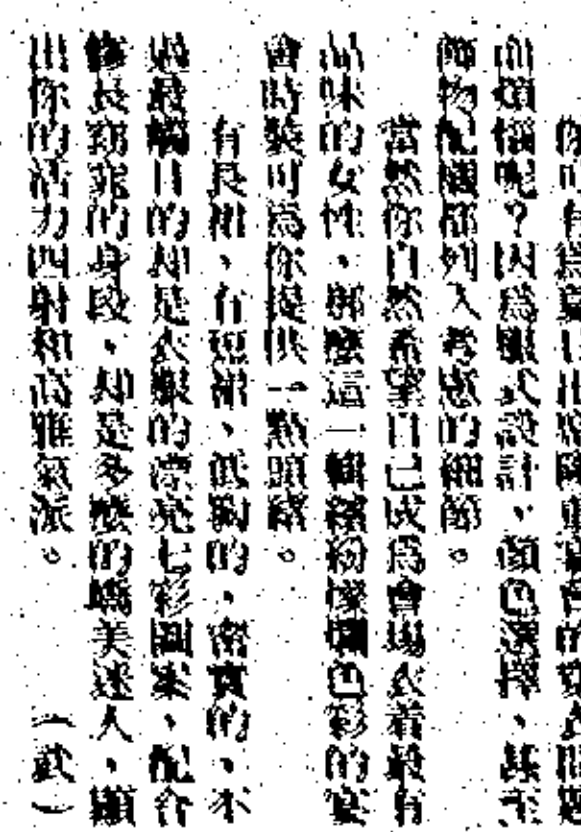 你可有為著上出席隆重宴會的穿衣問題
而煩惱呢？因為服式設計，顏色選擇、甚至
飾物配襯都列入考慮的細節。
當然你自然希望自己成為會場衣着最有
品味的女性，那麼這一輯繽紛燦爛色彩的宴
會時裝可為你提供一點頭緒。
有長裙、有短裙、低胸的、密實的、不
過最觸目的却是衣服的漂亮七彩圖案、配合
修長窈窕的身段，却是多麼的嬌美迷人，顯
出你的活力四射和高雅氣派。（武）